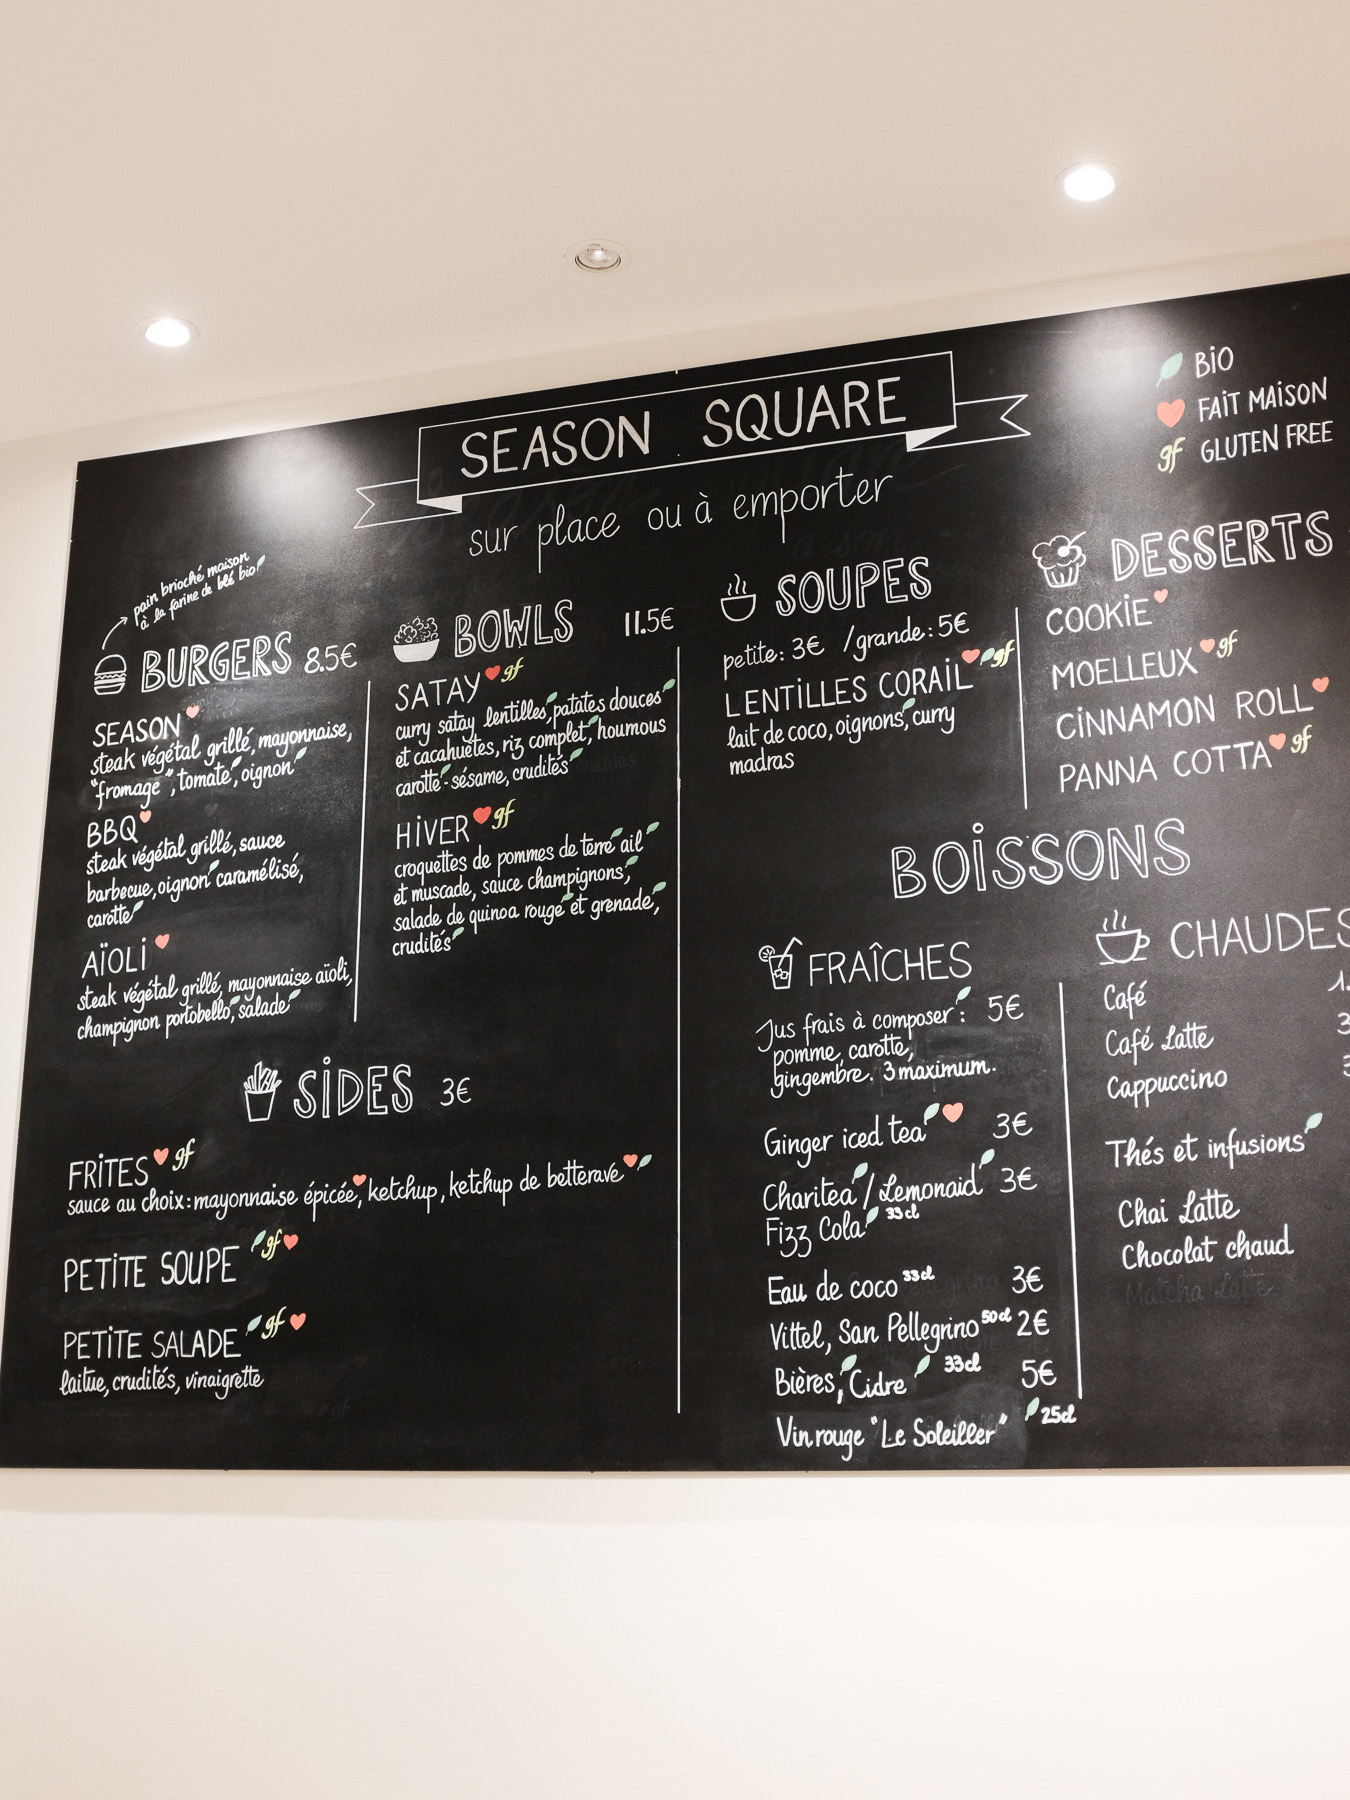 SEASON SQUARE
sur place ou à emporter
BIO
FAIT MAISON
gf GLUTEN FREE
pain brioché maison
à la farine de blé bio
BURGERS 8.5€
SEASON
steak végétal grillé, mayonnaise,
"fromage", tomate, oignon
BBQ
steak végétal grillé, sauce
barbecue, oignon caramélisé,
carotte
AÏOLI
steak végétal grillé, mayonnaise aïoli,
champignon portobello, salade
BOWLS 11.5€
SATAY gf
curry satay lentilles, patates douces
et cacahuètes, riz complet, houmous
carotte-sésame, crudités
HIVER gf
croquettes de pommes de terre ail
et muscade, sauce champignons,
salade de quinoa rouge et grenade,
crudités
SIDES 3€
FRITES gf
sauce au choix: mayonnaise épicée, ketchup, ketchup de betterave
PETITE SOUPE gf
PETITE SALADE gf
laitue, crudités, vinaigrette
SOUPES
petite: 3€ /grande: 5€
LENTILLES CORAIL gf
lait de coco, oignons, curry
madras
DESSERTS
COOKIE
MOELLEUX gf
CINNAMON ROLL
PANNA COTTA gf
BOISSONS
FRAÎCHES
Jus frais à composer: 5€
pomme, carotte,
gingembre. 3 maximum.
Ginger iced tea 3€
Charitea / Lemonaid 3€
Fizz Cola 33cl
Eau de coco 33cl 3€
Vittel, San Pellegrino 50cl 2€
Bières, Cidre 33cl 5€
Vin rouge "Le Soleiller" 25cl
CHAUDES
Café 1.
Café Latte 3
Cappuccino 3
Thés et infusions
Chai Latte
Chocolat chaud
Matcha Latte